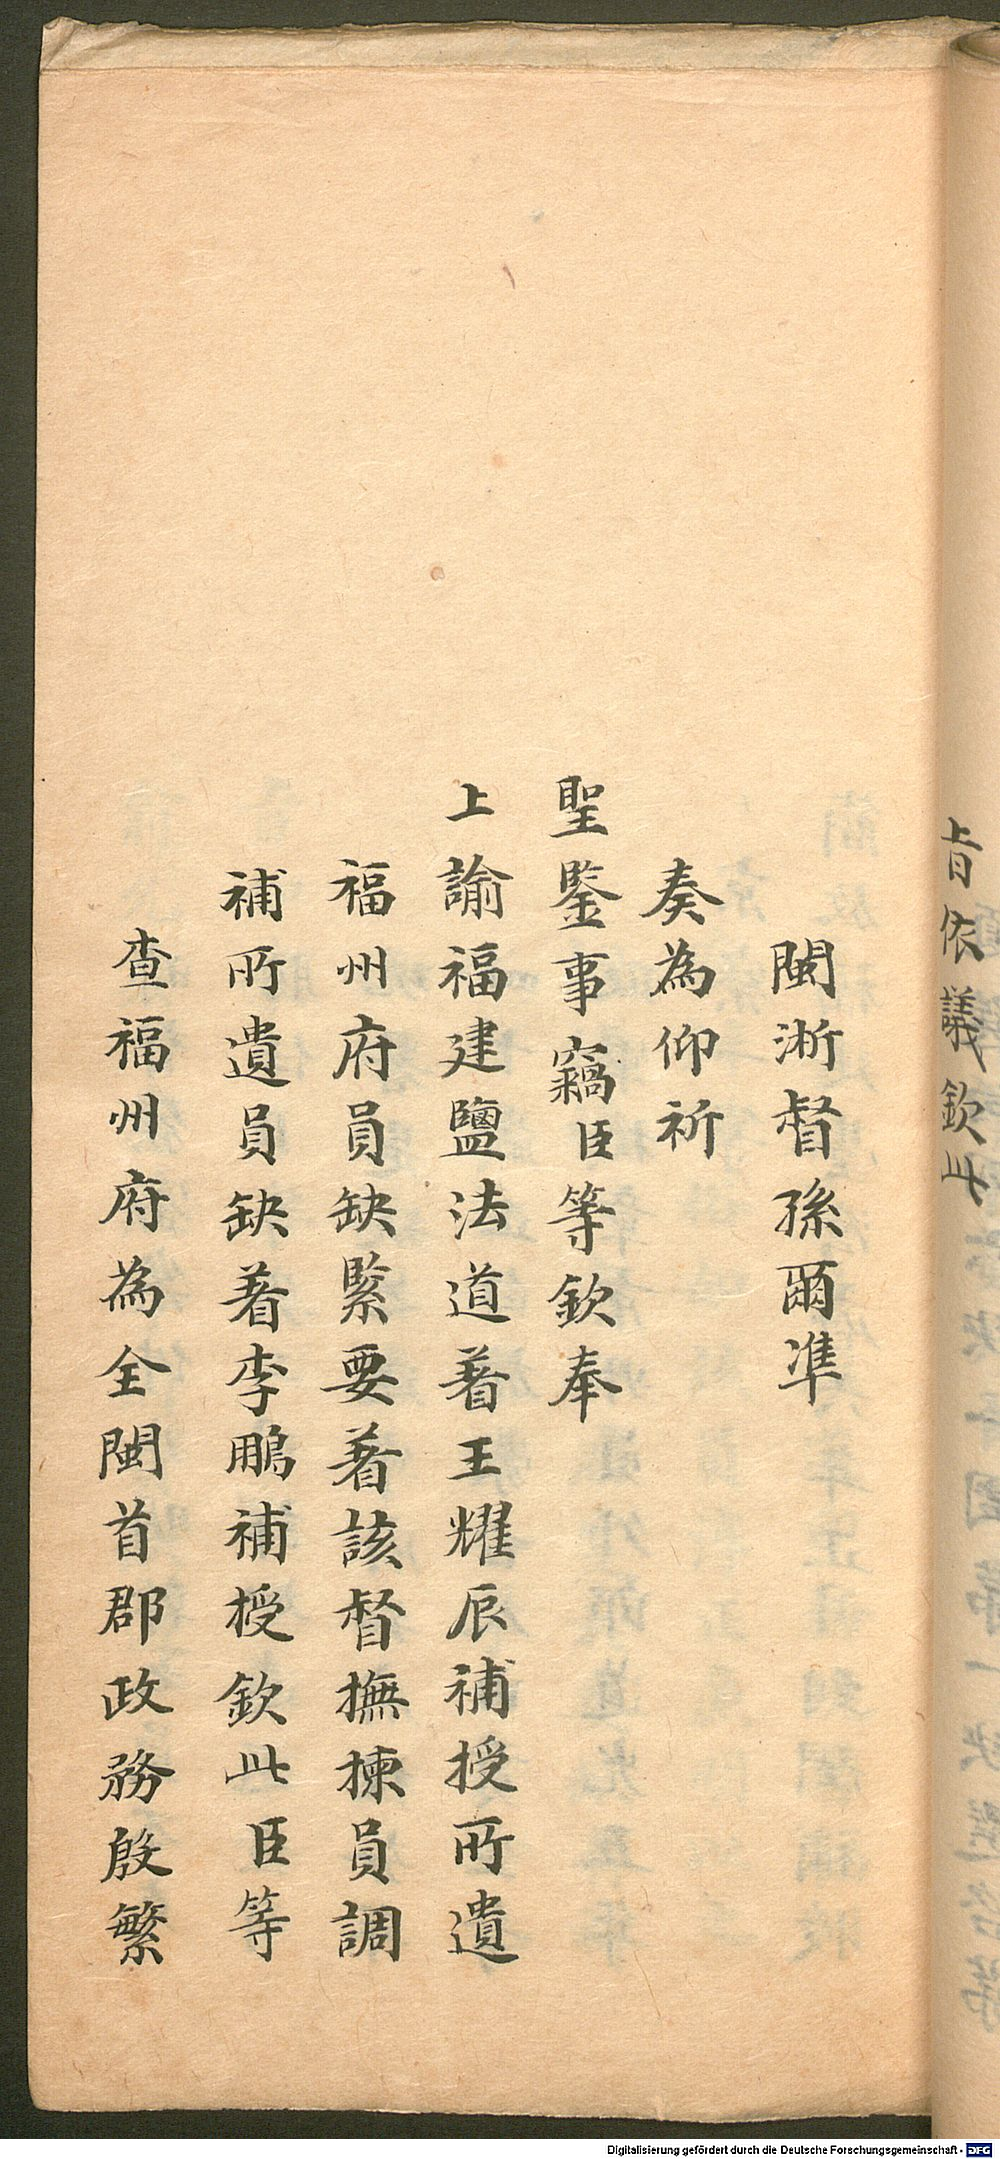 旨依議欽此
閩淅督孫爾準
奏為仰祈
聖鑒事竊臣等欽奉
上諭福建鹽法道着王耀辰補授所遺
福州府員缺緊要着該督撫揀員調
補所遺員缺着李鵬補授欽此臣等
查福州府為全閩首郡政務殷繁
Digitalisierung gefördert durch die Deutsche Forschungsgemeinschaft - DFG